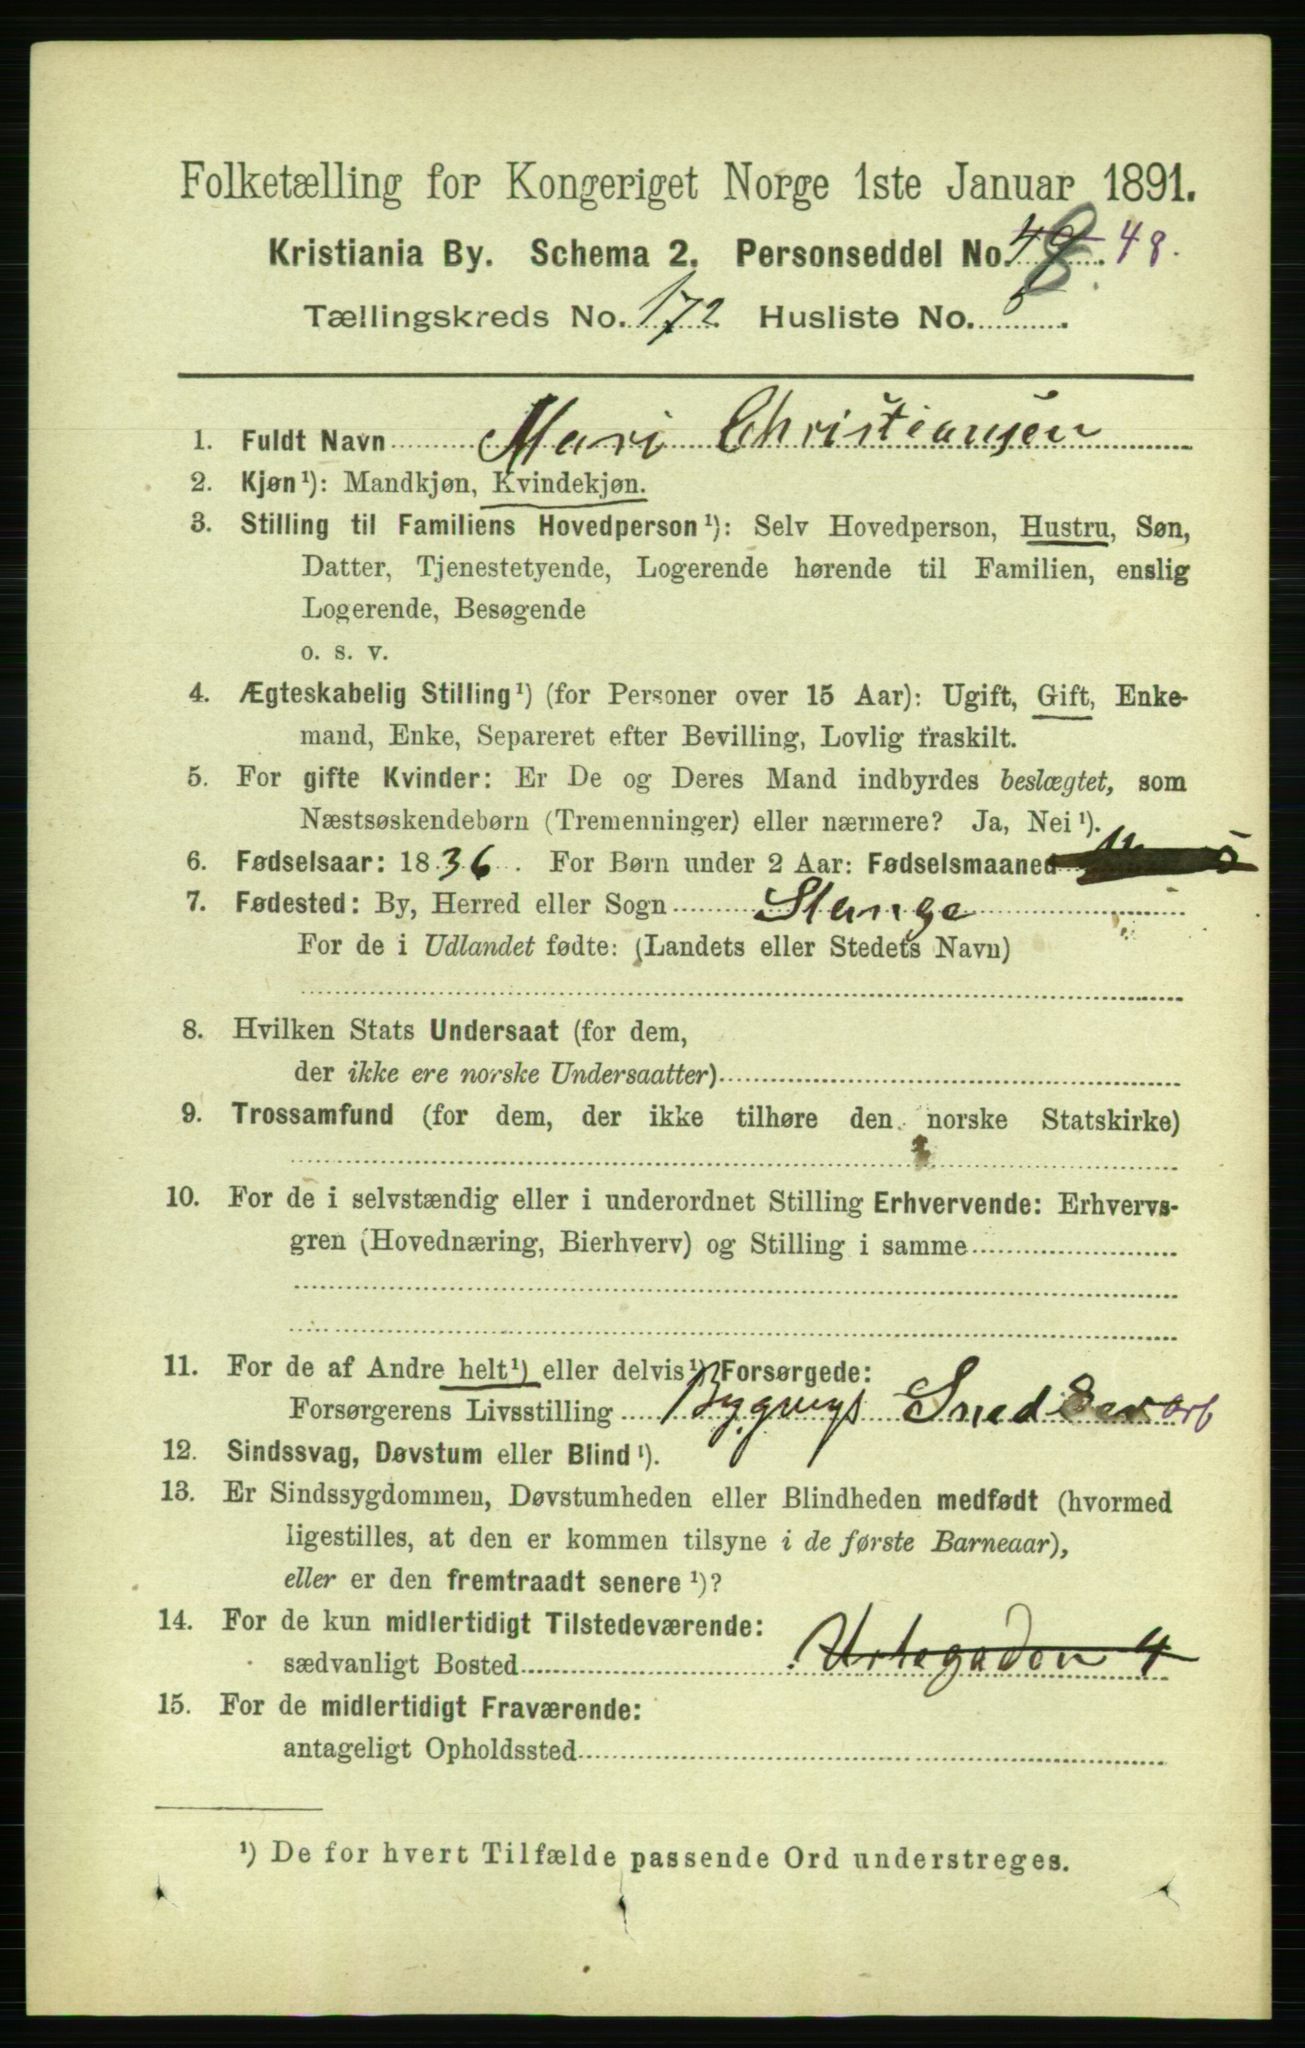 Folketælling for Kongeriget Norge 1ste Januar 1891.
Kristiania By. Schema 2. Personseddel No. 48.
Tællingskreds No. 172 Husliste No. 5.
1. Fuldt Navn Mari Christiansen
2. Kjøn¹): Mandkjøn, Kvindekjøn.
3. Stilling til Familiens Hovedperson¹): Selv Hovedperson, Hustru, Søn,
Datter, Tjenestetyende, Logerende hørende til Familien, enslig
Logerende, Besøgende
o. s. v.
4. Ægteskabelig Stilling¹) (for Personer over 15 Aar): Ugift, Gift, Enke-
mand, Enke, Separeret efter Bevilling, Lovlig fraskilt.
5. For gifte Kvinder: Er De og Deres Mand indbyrdes beslægtet, som
Næstsøskendebørn (Tremenninger) eller nærmere? Ja, Nei¹).
6. Fødselsaar: 1836. For Børn under 2 Aar: Fødselsmaaned
7. Fødested: By, Herred eller Sogn Stange
For de i Udlandet fødte: (Landets eller Stedets Navn)
8. Hvilken Stats Undersaat (for dem,
der ikke ere norske Undersaatter)
9. Trossamfund (for dem, der ikke tilhøre den norske Statskirke)
10. For de i selvstændig eller i underordnet Stilling Erhvervende: Erhvervs-
gren (Hovednæring, Bierhverv) og Stilling i samme
11. For de af Andre helt¹) eller delvis¹) Forsørgede:
Forsørgerens Livsstilling Bygnings Snedker arb
12. Sindssvag, Døvstum eller Blind¹).
13. Er Sindssygdommen, Døvstumheden eller Blindheden medfødt (hvormed
ligestilles, at den er kommen tilsyne i de første Barneaar),
eller er den fremtraadt senere¹)?
14. For de kun midlertidigt Tilstedeværende:
sædvanligt Bosted Urtegaden 4
15. For de midlertidigt Fraværende:
antageligt Opholdssted
¹) De for hvert Tilfælde passende Ord understreges.